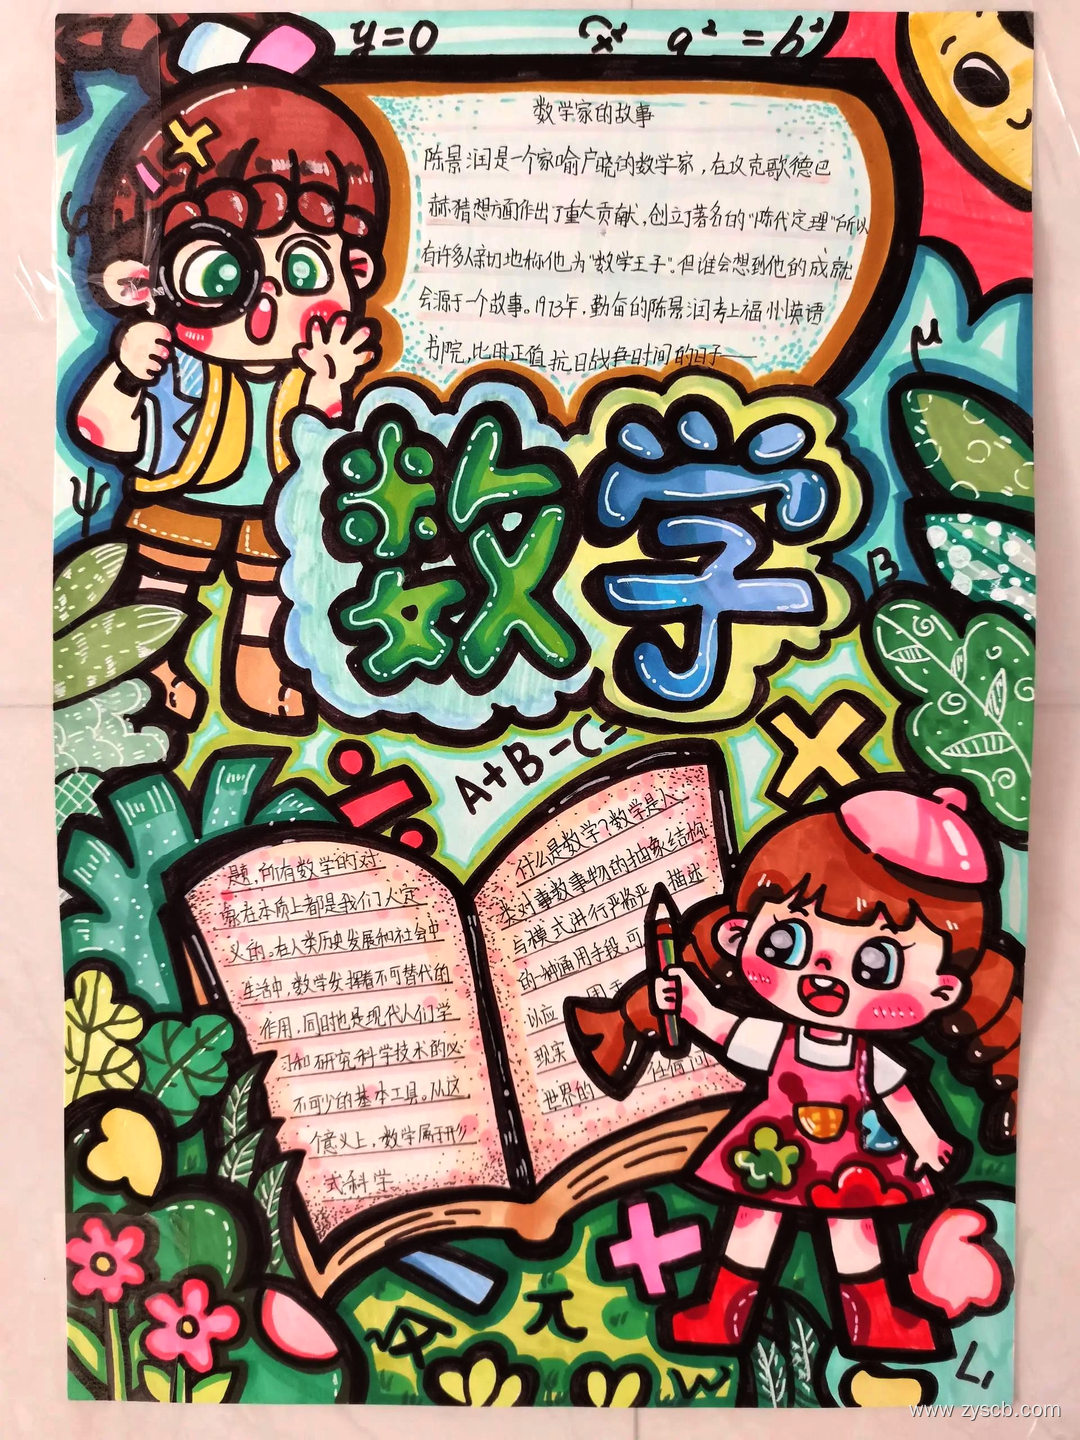 y=0
x² a² = b²
数学家的故事
陈景润是一个家喻户晓的数学家,在攻克歌德巴
赫猜想方面作出了重大贡献,创立了著名的"陈代定理"所以
有许多人亲切地称他为"数学王子"。但谁会想到他的成就
会源于一个故事。1973年,勤奋的陈景润考上福州英语
书院,比时正值抗日战争时间的日子——
μ
数学
ψ
B
A+B-C=
题,所有数学的对
象在本质上都是我们人定
义的。在人类历史发展和社会中
生活中,数学发挥着不可替代的
作用,同时也是现代人们学
习和研究科学技术的必
不可少的基本工具。从这
个意义上,数学属于形
式科学
什么是数学?数学是人
类对事数事物的抽象结构
与模式进行严格严 描述
的一种通用手段,可
以应 用于
现实
世界的 任何问
π
w
L1
www.zyscb.com